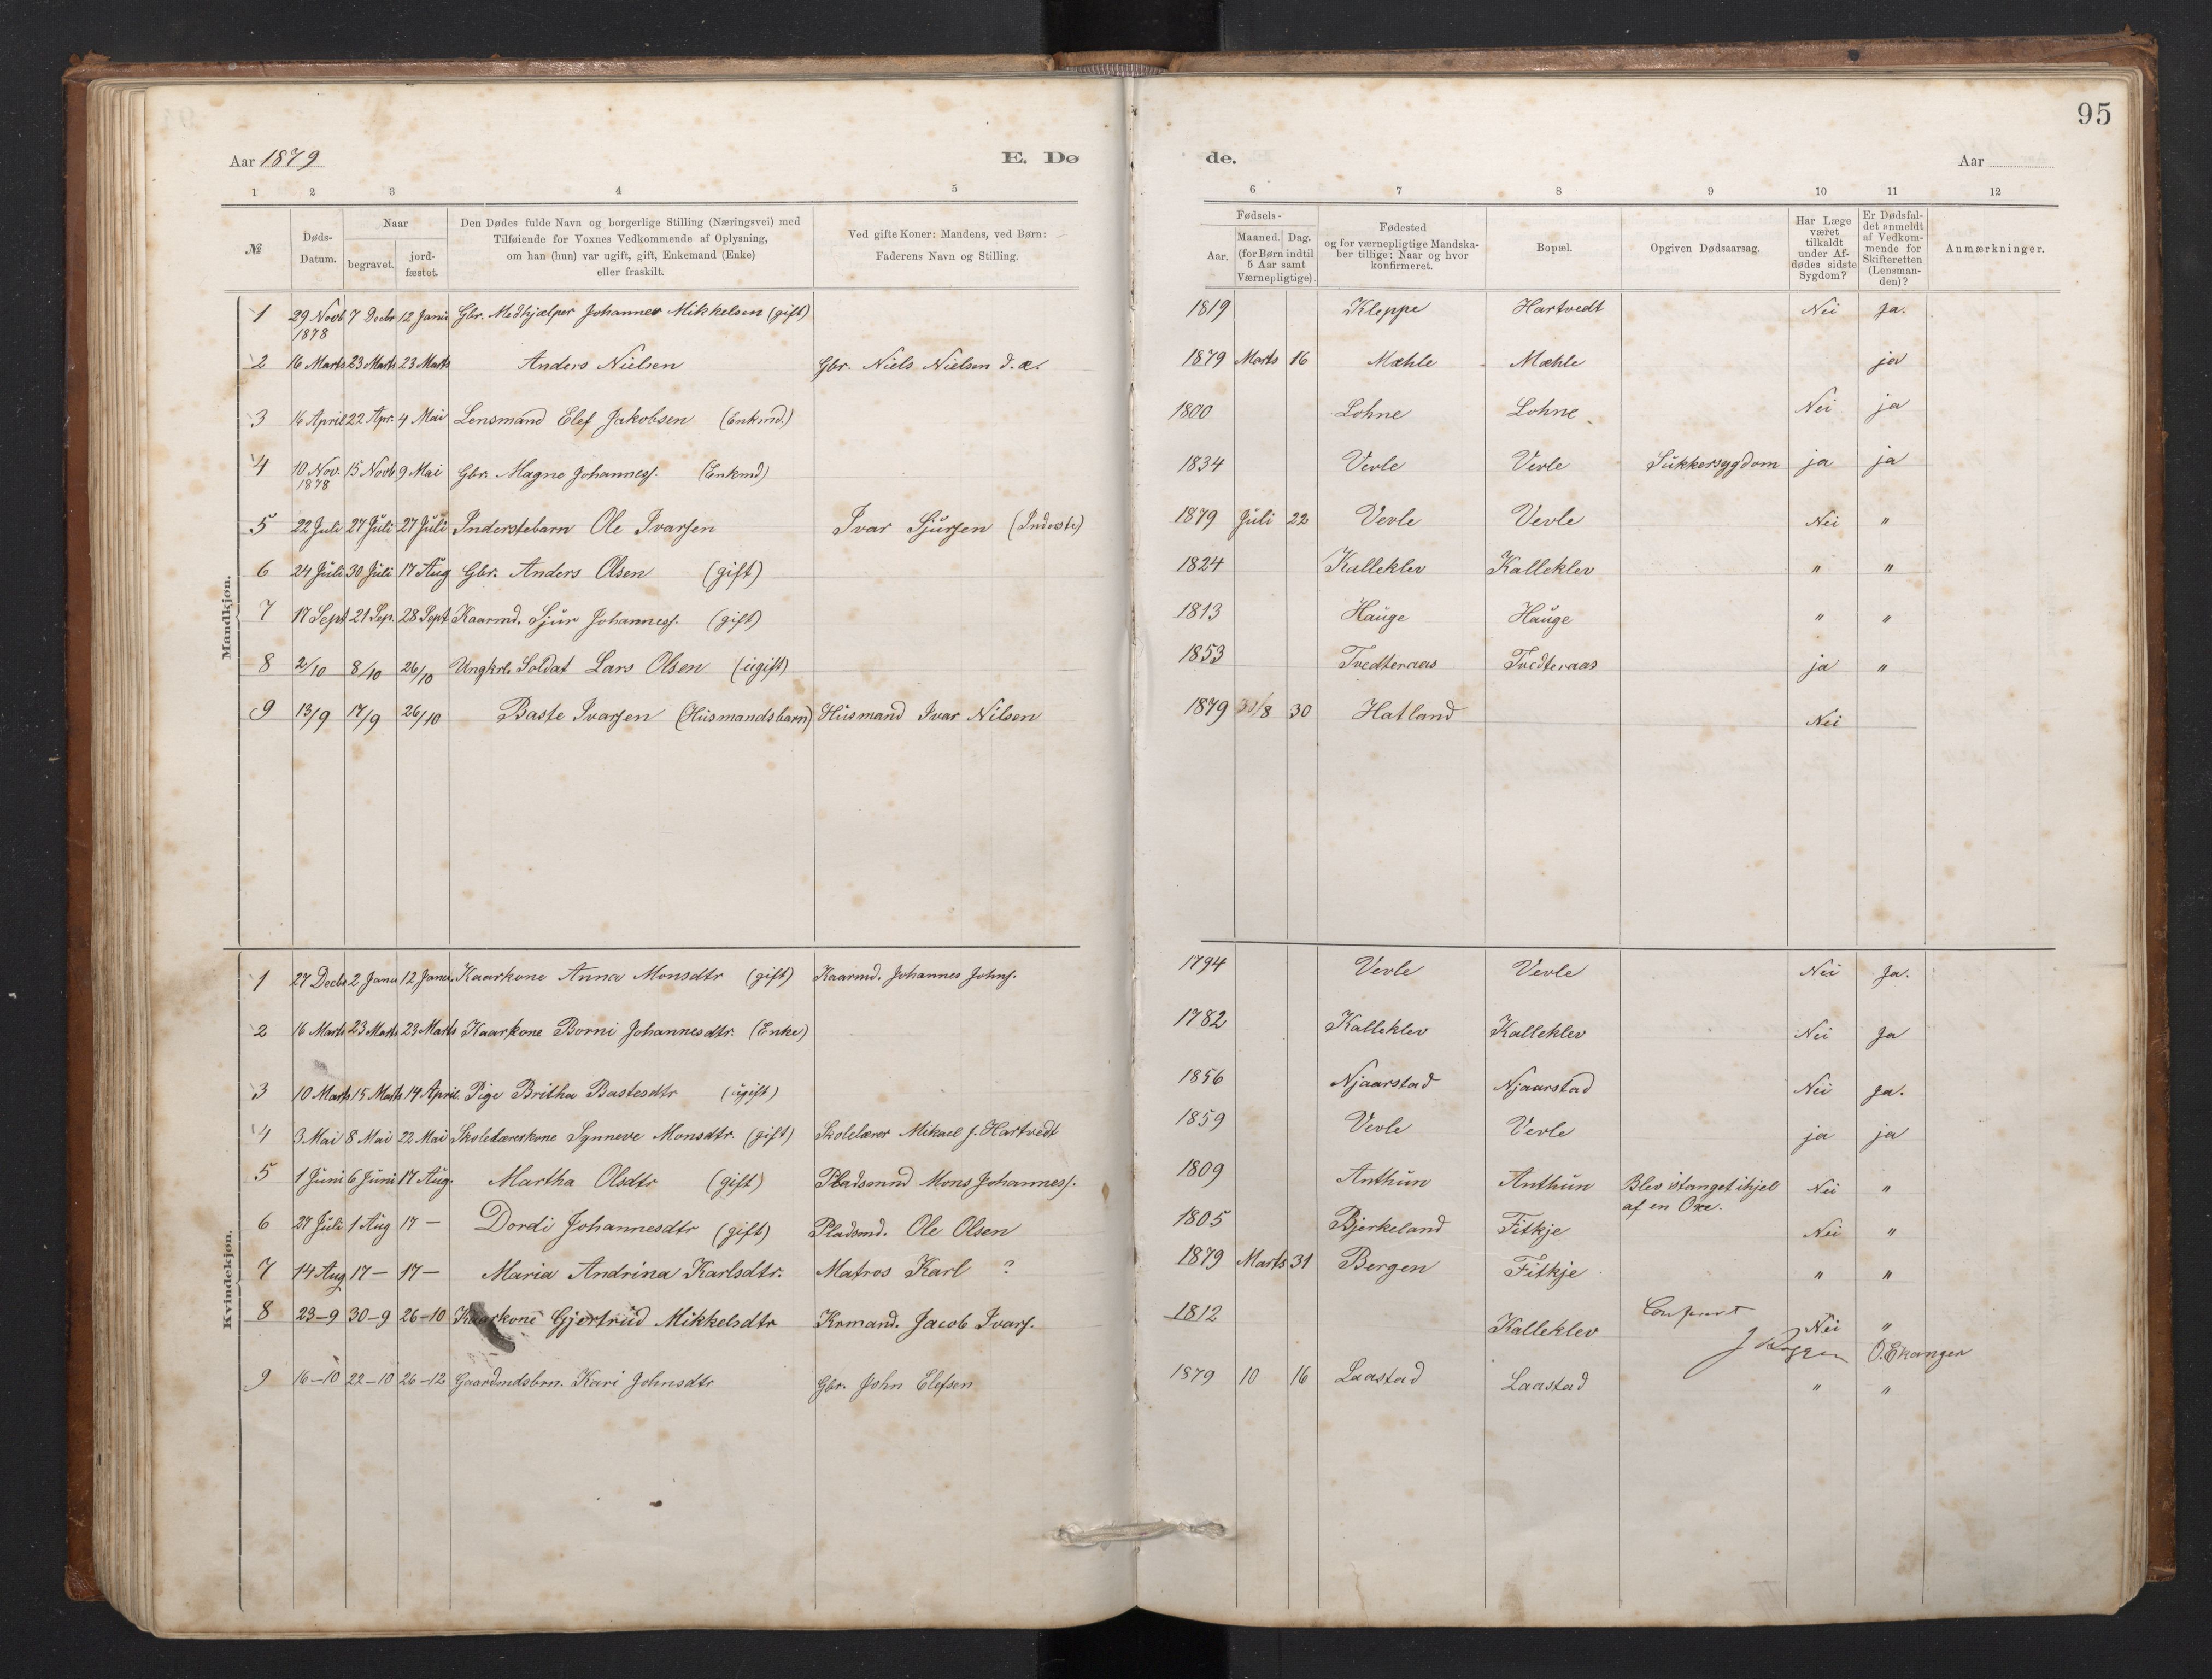 95
Aar 1879 E. Dø de. Aar
1 2 3 4 5 6 7 8 9 10 11 12
№ Døds-Datum. Naar begravet. jord-fæstet. Den Dødes fulde Navn og borgerlige Stilling (Næringsvei) med Tilføiende for Voxnes Vedkommende af Oplysning, om han (hun) var ugift, gift, Enkemand (Enke) eller fraskilt. Ved gifte Koner: Mandens, ved Børn: Faderens Navn og Stilling. Fødsels- Aar. Maaned. Dag. (for Børn indtil 5 Aar samt Værnepligtige). Fødested og for værnepligtige Mandska-ber tillige: Naar og hvor konfirmeret. Bopæl. Opgiven Dødsaarsag. Har Læge været tilkaldt under Af-dødes sidste Sygdom? Er Dødsfal-det anmeldt af Vedkom-mende for Skifteretten (Lensman-den)? Anmærkninger.
Mandkjøn.
1 29 Novb. 1878 7 Decbr 12 Janu Gbr. Medhjælper Johannes Mikkelsen (gift) 1819 Kleppe Hartvedt Nei Ja.
2 16 Marts 23 Marts 23 Marts Anders Nielsen Gbr. Niels Nielsen d. æ. 1879 Marts 16 Mæhle Mæhle ja
3 16 April 22 Apr. 4 Mai Lensmand Elef Jakobsen (Enkmd.) 1800 Lohne Lohne Nei ja
4 10 Nov. 1878 15 Novb 9 Mai Gbr. Magne Johanness. (Enkmd) 1834 Vevle Vevle Sukkersygdom ja ja
5 22 Juli 27 Juli 27 Juli Inderstebarn Ole Ivarsen Ivar Sjursen (Inderste) 1879 Juli 22 Vevle Vevle Nei "
6 24 Juli 30 Juli 17 Aug Gbr. Anders Olsen (gift) 1824 Kalleklev Kalleklev " "
7 17 Sept 21 Sep. 28 Sept Kaarmd. Sjur Johanness. (gift) 1813 Hauge Hauge " "
8 2/10 8/10 26/10 Ungkrl. Soldat Lars Olsen (ugift) 1853 Tvedteraas Tvedteraas ja "
9 13/9 17/9 26/10 Baste Ivarsen (Husmandsbarn) Husmand Ivar Nilsen 1879 30/8 30 Hatland Nei
Kvindekjøn.
1 27 Decbr 2 Janu 12 Janu. Kaarkone Anna Monsdtr (gift) Kaarmd. Johannes Johns. 1794 Vevle Vevle Nei Ja.
2 16 Marts 23 Marts 23 Marts Kaarkone Borni Johannesdtr. (Enke) 1782 Kalleklev Kalleklev Nei Ja
3 10 Marts 15 Marts 14 April. Pige Britha Bastesdtr (ugift) 1856 Njaarstad Njaarstad Nei Ja.
4 3 Mai 8 Mai 22 Mai Skolelærerskone Synneve Monsdtr. (gift) Skolelærer Mikael J. Hartvedt 1859 Vevle Vevle ja ja
5 1 Juni 6 Juni 17 Aug. Martha Olsdtr (gift) Pladsmnd Mons Johanness. 1809 Anthun Anthun Blev stanget ihjel af en Oxe. Nei "
6 27 Juli 1 Aug 17 – Dordi Johannesdtr (gift) Pladsmd. Ole Olsen 1805 Bjerkeland Fitkje Nei "
7 14 Aug 17 – 17 – Maria Andrina Karlsdtr. Matros Karl ? 1879 Marts 31 Bergen Fitkje " "
8 23–9 30–9 26–10 Kaarkone Gjertrud Mikkelsdtr Krmand. Jacob Ivars. 1812 Kalleklev Nei "
Conferert O. Ekanger
9 16–10 22–10 26–12 Gaardmdsbrn. Kari Johnsdtr Gbr. John Elefsen 1879 10 16 Laastad Laastad " "